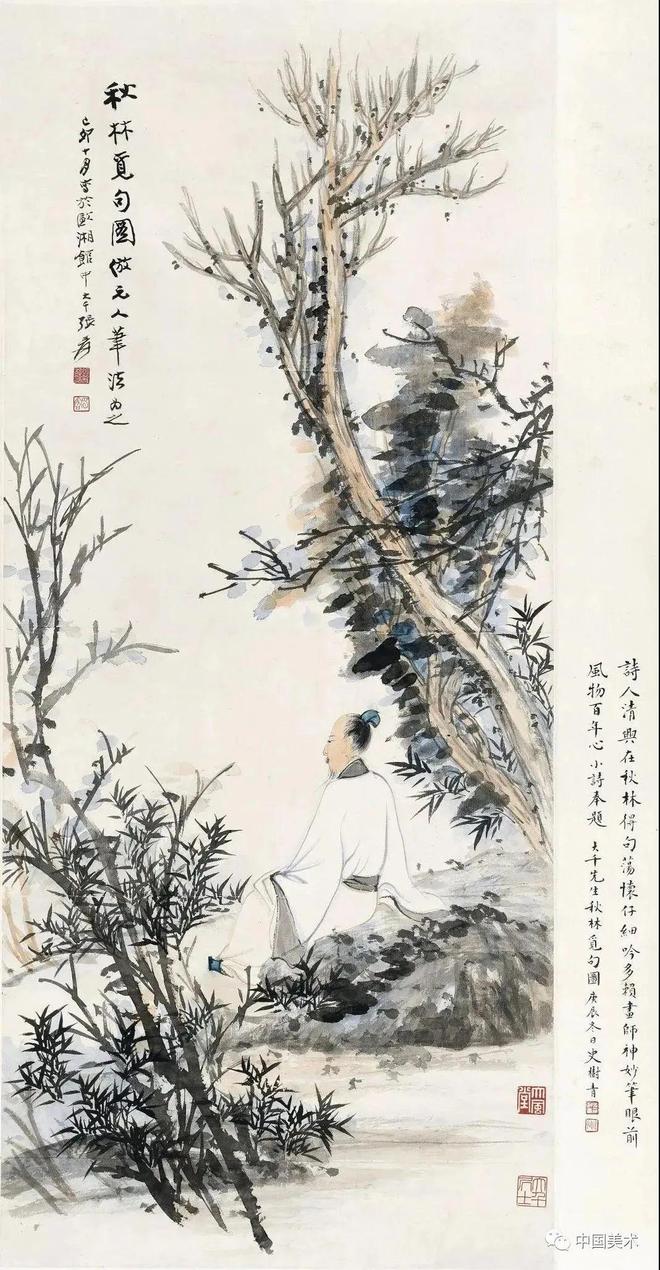 秋林覓句圖倣元人筆法為之
己卯十月寫於甌湘館中大千張爰
詩人清興在秋林得句蕩懷仔細吟多賴畫師神妙筆眼前
風物百年心小詩奉題大千先生秋林覓句圖庚辰冬日史樹青
大風堂
大千居士
中国美术